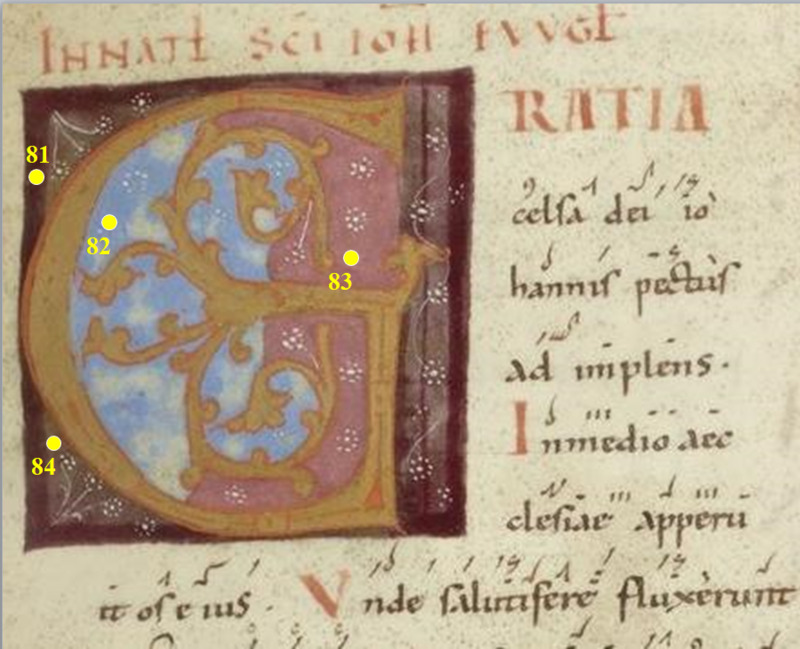 IN NAT SCI IOH EVVGE
81
82
83
84
G RATIA
celsa dei iò
hannis pectus
ad implens.
Inmedio aec
clesiae apperu
it os eius. Vnde salutiferę fluxerunt